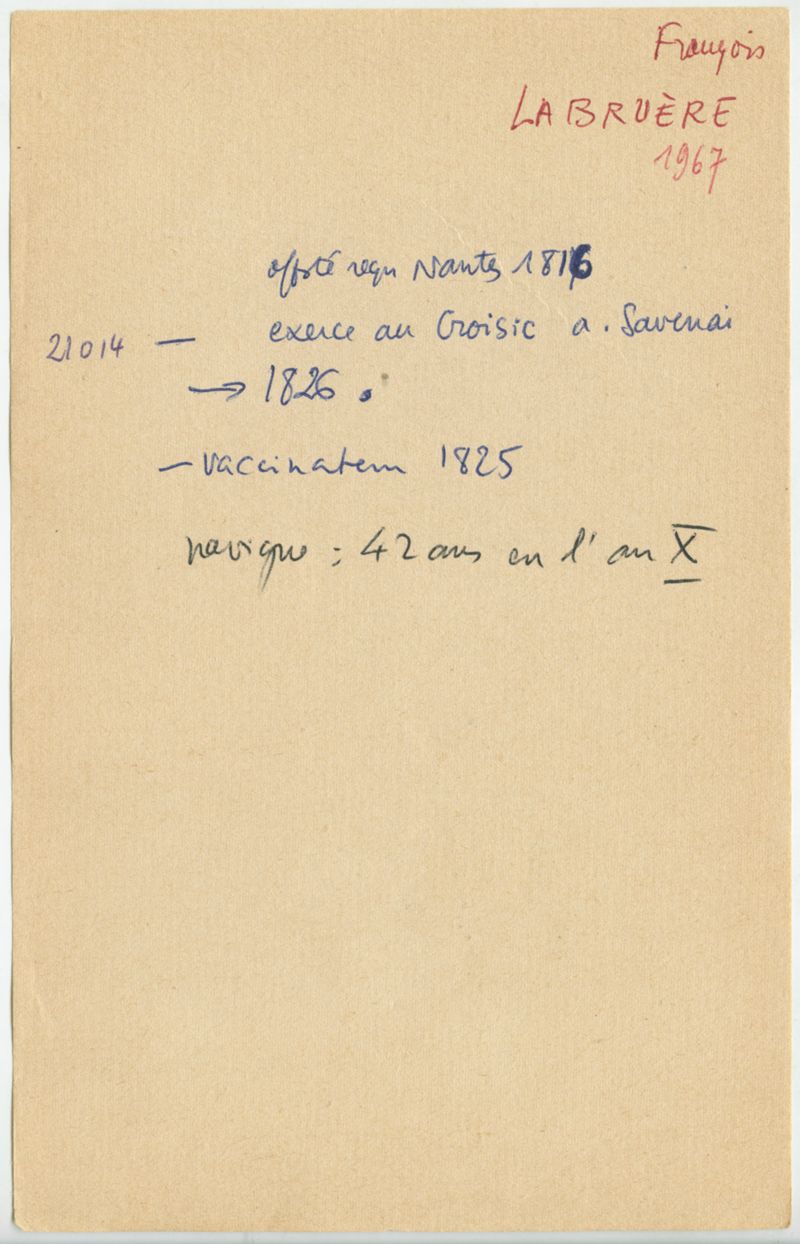 François
LABRUÈRE
1967
offsté reçu Nantes 1816
21014 — exerce au Croisic a. Savenai
→ 1826.
— vaccinateur 1825
navigue : 42 ans en l'an X